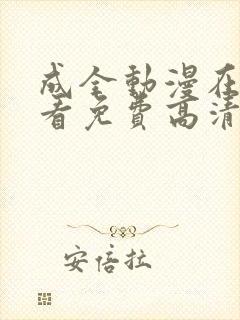 成全動漫在
看免費高清
安倍拉